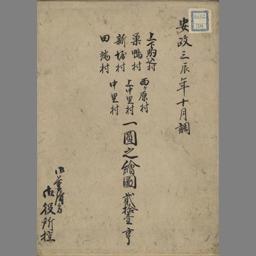 安政三辰年十月調
上下駒込村
巣鴨村
新堀村
田端村
西ヶ原村
上中里村
中里村
一圓之繪圖 貳拾壹
役所控